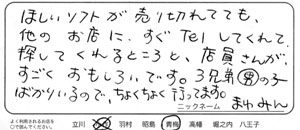 ほしいソフトが売り切れてても、
他のお店に、すぐTelしてくれて
探してくれるところと、店員さんが、
すごくおもしろいです。3兄弟男の子
ばかりいるので、ちょくちょく行ってます。
ニックネーム まゆみん
よく利用されるお店を
○で囲んでください。
立川 羽村 昭島 青梅 高幡 堀之内 八王子